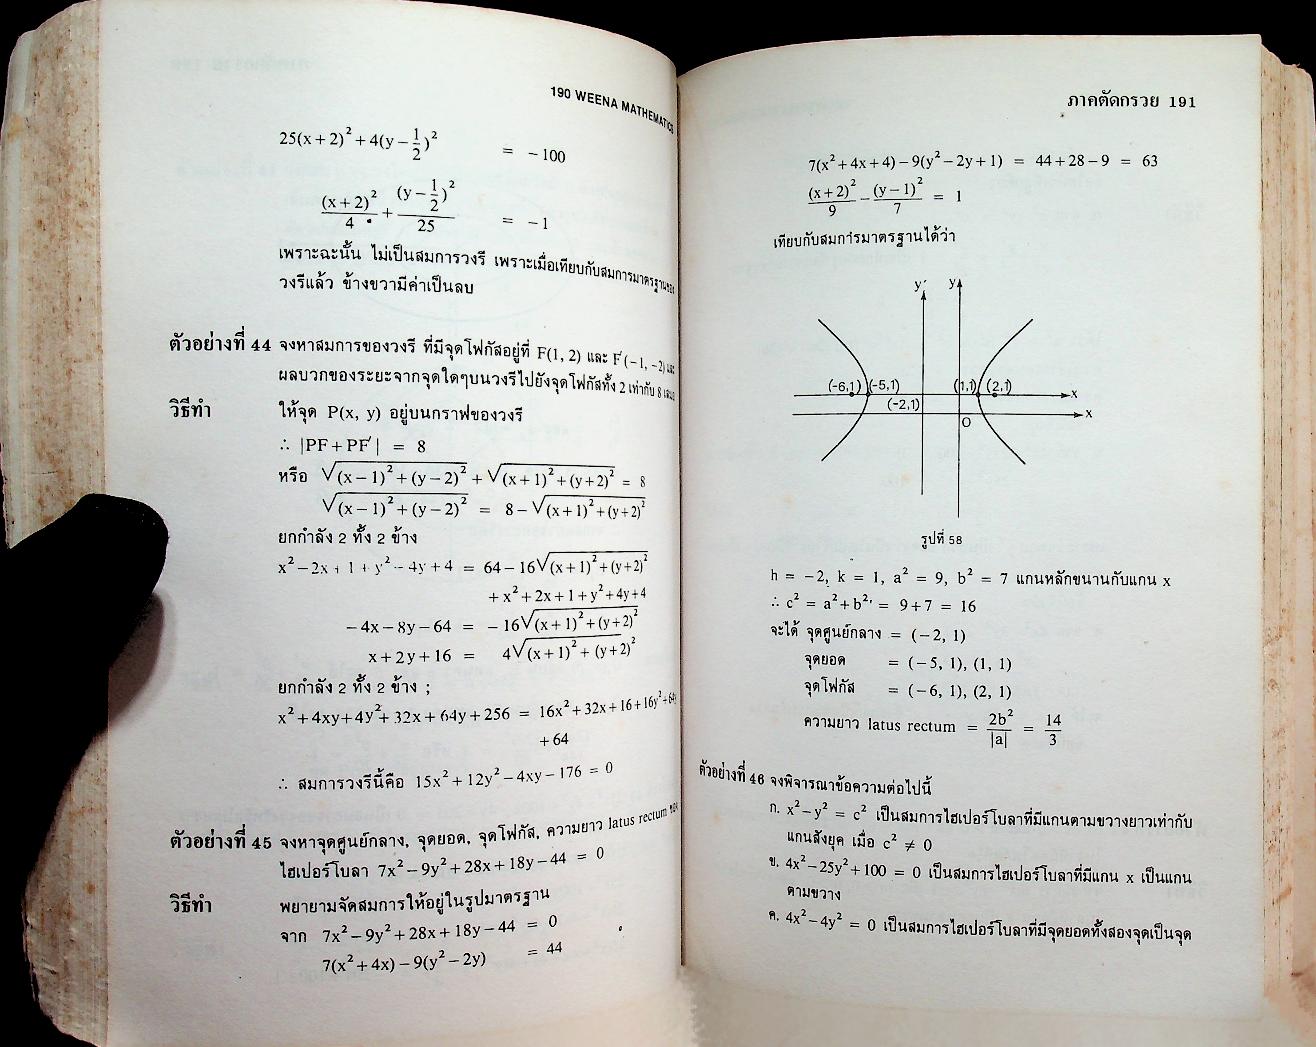 190 WEENA MATHEMATICS
25(x+2)² + 4(y−1/2)² = −100
(x+2)²/4 + (y−1/2)²/25 = −1
เพราะฉะนั้น ไม่เป็นสมการวงรี เพราะเมื่อเทียบกับสมการมาตรฐานของ
วงรีแล้ว ข้างขวามีค่าเป็นลบ
ตัวอย่างที่ 44 จงหาสมการของวงรี ที่มีจุดโฟกัสอยู่ที่ F(1, 2) และ F′(−1, −2) และ
ผลบวกของระยะจากจุดใดๆบนวงรีไปยังจุดโฟกัสทั้ง 2 เท่ากับ 8
วิธีทำ ให้จุด P(x, y) อยู่บนกราฟของวงรี
∴ |PF+PF′| = 8
หรือ √((x−1)²+(y−2)²) + √((x+1)²+(y+2)²) = 8
√((x−1)²+(y−2)²) = 8−√((x+1)²+(y+2)²)
ยกกำลัง 2 ทั้ง 2 ข้าง
x²−2x+1+y²−4y+4 = 64−16√((x+1)²+(y+2)²)
+x²+2x+1+y²+4y+4
−4x−8y−64 = −16√((x+1)²+(y+2)²)
x+2y+16 = 4√((x+1)²+(y+2)²)
ยกกำลัง 2 ทั้ง 2 ข้าง ;
x²+4xy+4y²+32x+64y+256 = 16x²+32x+16+16y²+64y
+64
∴ สมการวงรีนี้คือ 15x²+12y²−4xy−176 = 0
ตัวอย่างที่ 45 จงหาจุดศูนย์กลาง, จุดยอด, จุดโฟกัส, ความยาว latus rectum ของ
ไฮเปอร์โบลา 7x²−9y²+28x+18y−44 = 0
วิธีทำ พยายามจัดสมการให้อยู่ในรูปมาตรฐาน
จาก 7x²−9y²+28x+18y−44 = 0
7(x²+4x)−9(y²−2y) = 44
ภาคตัดกรวย 191
7(x²+4x+4)−9(y²−2y+1) = 44+28−9 = 63
(x+2)²/9 − (y−1)²/7 = 1
เทียบกับสมการมาตรฐานได้ว่า
y′ y
(-6,1) (-5,1) (1,1) (2,1) x
(-2,1) x
O
รูปที่ 58
h = −2, k = 1, a² = 9, b² = 7 แกนหลักขนานกับแกน x
∴ c² = a²+b² = 9+7 = 16
จะได้ จุดศูนย์กลาง = (−2, 1)
จุดยอด = (−5, 1), (1, 1)
จุดโฟกัส = (−6, 1), (2, 1)
ความยาว latus rectum = 2b²/|a| = 14/3
ตัวอย่างที่ 46 จงพิจารณาข้อความต่อไปนี้
ก. x²−y² = c² เป็นสมการไฮเปอร์โบลาที่มีแกนตามขวางยาวเท่ากับ
แกนสังยุค เมื่อ c² ≠ 0
ข. 4x²−25y²+100 = 0 เป็นสมการไฮเปอร์โบลาที่มีแกน x เป็นแกน
ตามขวาง
ค. 4x²−4y² = 0 เป็นสมการไฮเปอร์โบลาที่มีจุดยอดทั้งสองจุดเป็นจุด